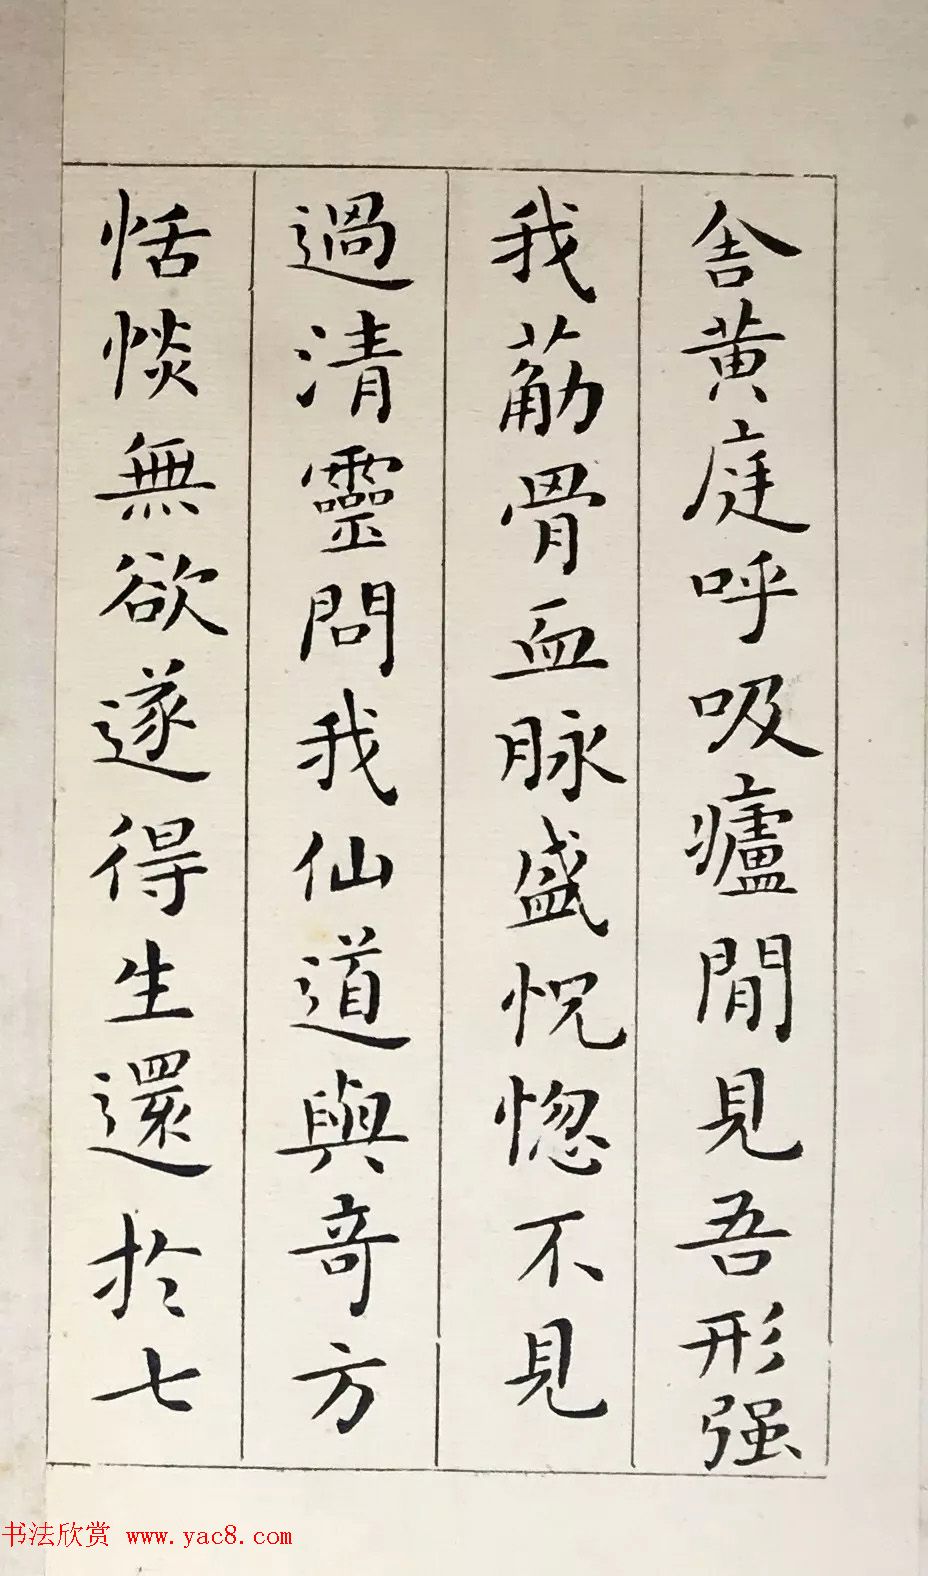 舍黄庭呼吸廬間見吾形强
我萮骨血脉盛怳惚不見
過清靈問我仙道與奇方
恬惔無欲遂得生還於七
书法欣赏 www.yac8.com